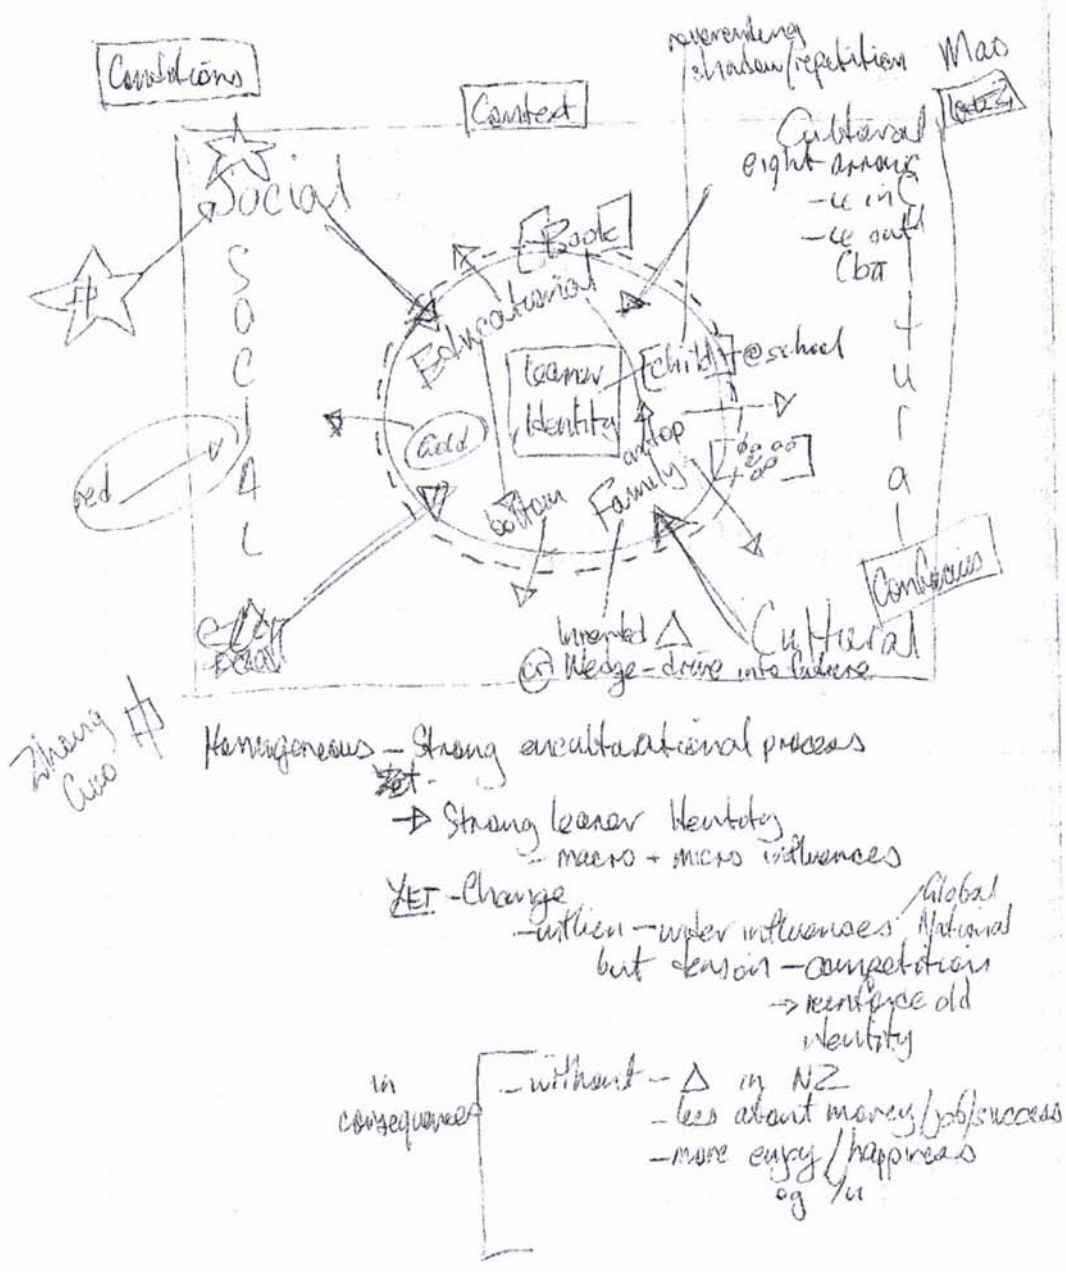 Conditions
Context
shadow/repetition
Mao
Cultural
eight arrows
- ie in
- ie out
Social
Book
Educational
S
O
C
I
A
L
Learner
Identity
child
@school
add
on top
Family
bottom
red
t
u
r
a
l
Confucius
Inverted △
or Wedge-drive into future
Cultural
Zhong
Guo 中
Homogeneous - Strong enculturational process
→ Strong learner Identity
- macro + micro influences
YET - Change
- within - under influences
Global
National
but tension - competition
→ reinforce old
identity
in
consequences
- without - △ in NZ
- less about money/job/success
- more enjoy/happiness
eg Yu